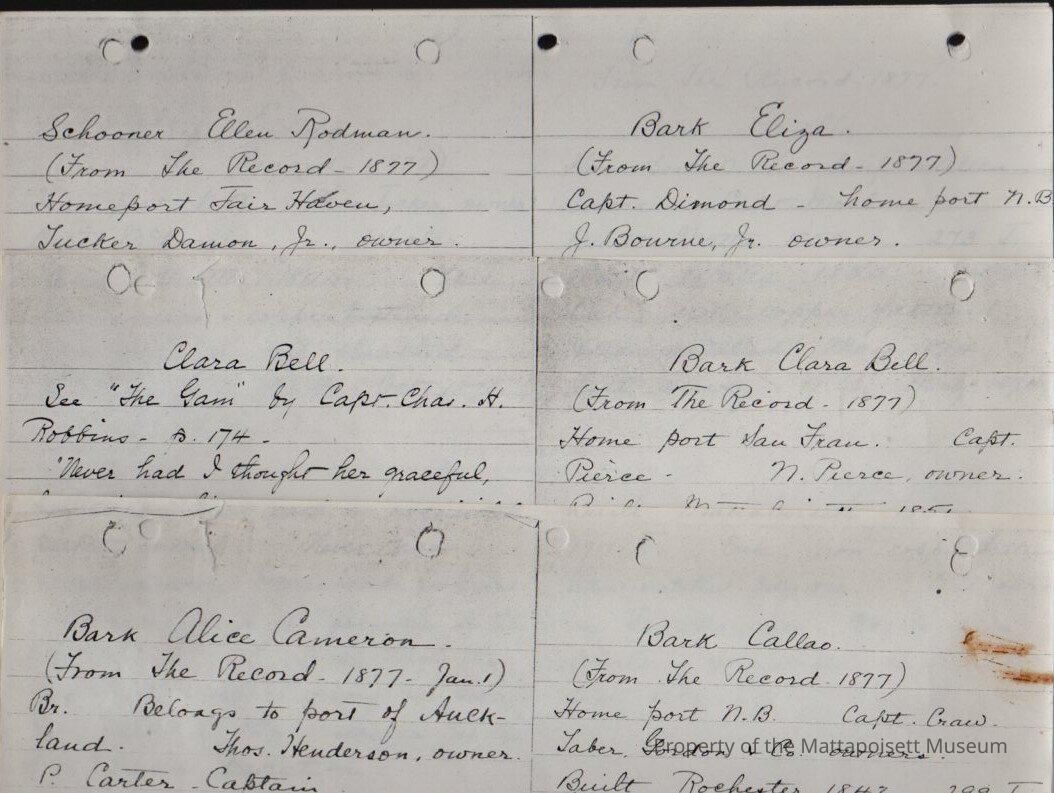 Schooner Ellen Rodman.
(From The Record - 1877)
Homeport Fair Haven,
Tucker Damon, Jr., owner.
Bark Eliza.
(From The Record - 1877)
Capt. Dimond - home port N.B.
J. Bourne, Jr. owner.
Clara Bell.
See "The Gam" by Capt. Chas. H.
Robbins - p. 174 -
"Never had I thought her graceful,
Bark Clara Bell.
(From The Record - 1877)
Home port San Fran. Capt.
Pierce - N. Pierce, owner.
Bark Alice Cameron.
(From The Record - 1877 - Jan. 1)
Br. Belongs to port of Auck-
land. Thos. Henderson, owner.
P. Carter - Captain
Bark Callao.
(From The Record - 1877)
Home port N.B. Capt. Craw.
Taber, Gordon & Co. owners.
Property of the Mattapoisett Museum
Built Rochester